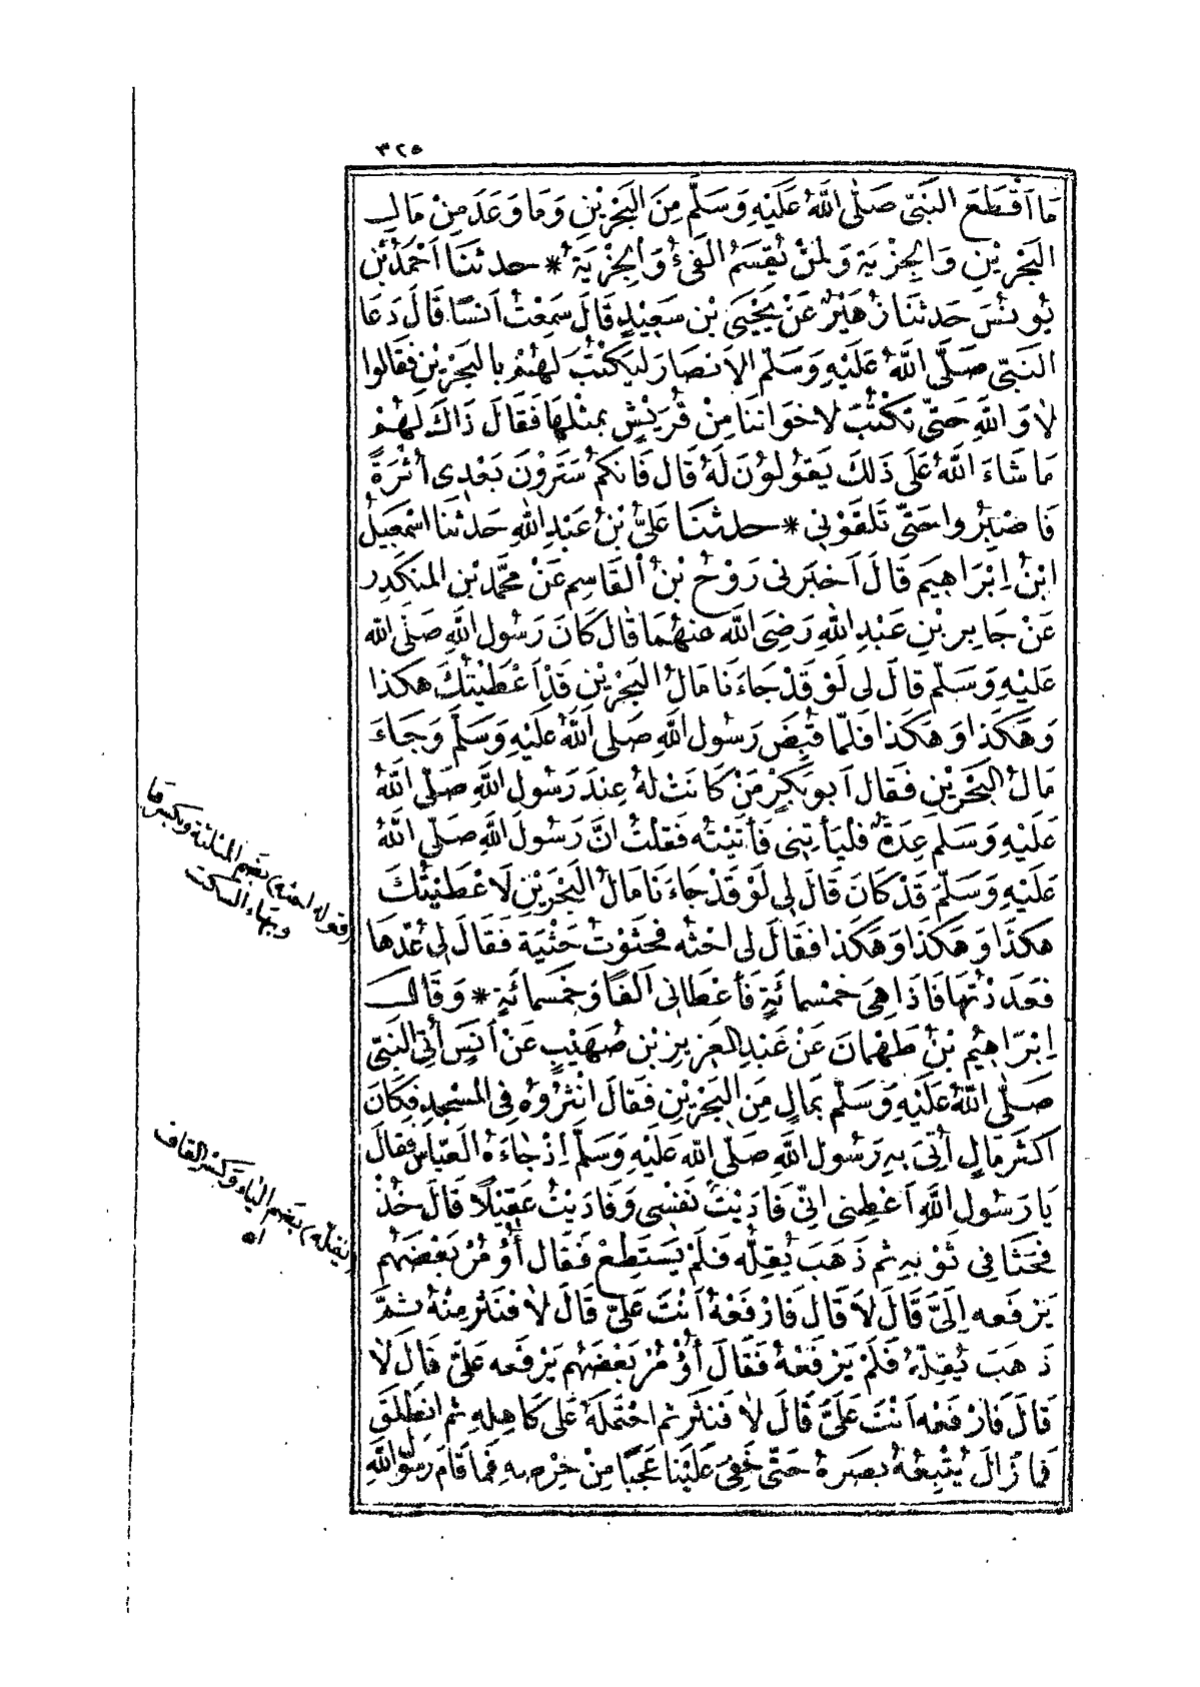 ٣٢٥
مَا اَقْطَعَ النَّبِيّ صَلَّى اللّٰهُ عَلَيْهِ وَسَلَّم مِنَ البَحْرَيْنِ وَمَا وَعَدَ مِنْ مَالِ
البَحْرَيْنِ وَالجِزْيَةِ وَلِمَنْ يُقْسَمُ الفَيْءُ وَالجِزْيَةُ * حدثنَا اَحْمَدُ بْنُ
يُونُسَ حَدثنَا زُهَيْرٌ عَنْ يَحْيَى بْنِ سَعِيْدٍ قَالَ سَمِعْتُ اَنَسًا قَالَ دَعَا
النَّبِيّ صَلَّى اللّٰهُ عَلَيْهِ وَسَلَّم الاَنصَارَ لِيَكْتُبَ لَهُمْ بِالبَحْرَيْنِ فَقَالوا
لاَ وَاللّٰهِ حَتَّى تَكْتُبَ لاِخْوَانِنَا مِنْ قُرَيْشٍ بِمثْلِهَا فَقَالَ ذَاكَ لَهُمْ
مَا شَاءَ اللّٰهُ عَلَى ذَلِكَ يَقُولُونَ لَهُ قَالَ فَاِنكمْ سَتَرَوْنَ بَعْدِى اُثْرَةً
فَاصْبِرُوا حَتَّى تَلْقَوْنِي * حدثنَا عَليُّ بْنُ عَبْدِ اللّٰهِ حَدثنَا اسْمعِيلُ
ابْنُ اِبْرَاهِيمَ قَالَ اَخبَرنى رَوْحُ بْنُ القَاسِمِ عَنْ محَّمدِ بْنِ المنكَدِر
عَنْ جَابِرِ بْنِ عَبْدِ اللّٰهِ رَضِيَ اللّٰه عَنْهُمَا قَالَ كَانَ رَسُول اللّٰهِ صَلَّى اللّٰه
عَلَيْهِ وَسَلَّم قَالَ لى لَوْ قَدْ جَاءَنَا مَالُ البَحْرَيْنِ قَدْ اَعْطَيْتُكَ هكَذا
وَهَكَذَا وَهَكَذا فَلَمّا قُبِضَ رَسُول اللّٰهِ صَلى اللّٰهُ عَلَيْهِ وَسَلَّمَ وَجَاءَ
مَالُ البَحْرَيْنِ فَقَال اَبو بَكْرٍ مَنْ كَانَتْ لهُ عِندَ رَسُول اللّٰهِ صَلّى اللّٰهُ
عَلَيْهِ وَسَلم عِدَةٌ فَليَأتِنِي فَأَتَيْتُه فَقلتُ اِنَّ رَسُولَ اللّٰهِ صَلّى اللّٰهُ
عَلَيْهِ وَسَلّمَ قَدْ كَانَ قَالَ لِي لَوْ قَدْ جَاءَنَا مَالُ البَحْرَيْنِ لاَعْطَيْتُكَ
هَكذَا وَهَكَذَا وَهَكَذا فَقَالَ لى احْثُه فَحثَوْتُ حَثْيَةً فَقَالَ لِى عُدّهَا
فعَدَدْتُهَا فَاذَا هِيَ خمْسمائَةٍ فَأَعْطَانِي اَلفًا وَخَمسمائَةٍ * وَقَالَ
اِبْرَاهِيْم بْنُ طَهْمَانَ عَنْ عَبْدِ العَزِيزِ بْنِ صُهَيْبٍ عَنْ اَنَسٍ أُتِيَ النَّبِيّ
صَلَّى اللّٰهُ عَلَيْهِ وَسَلّم بمَالٍ مِنَ البَحْرَيْنِ فَقَالَ انْثُرُوهُ فِي المسْجِدِ فكَانَ
اَكثَرَ مَالٍ اُتِيَ بِهِ رَسُول اللّٰهِ صَلّى اللّٰه عَلَيْهِ وَسَلّم اِذْ جَاءَهُ العَبّاس فَقَالَ
يَا رَسُول اللّٰهِ اَعْطِنِى اِنّى فَادَيْتُ نَفْسِى وَفَادَيْتُ عَقِيْلاً قَالَ خُذْ
فَحَثَا فِي ثَوْبِهِ ثم ذَهَبَ يُقِلّه فَلَمْ يَسْتَطِعْ فَقَال اُؤْمُرْ بَعْضَهُم
يَرْفَعه اِلَيَّ قَالَ لاَ قَالَ فَارْفَعْهُ اَنْتَ عَلَيَّ قَالَ لاَ فَنَثَرَ مِنْهُ ثمَّ
ذَهَبَ يُقِلّهُ فَلَمْ يَرْفَعْهُ فَقَالَ اُؤْمُرْ بَعْضَهُم يَرْفَعه عَلَيَّ قَالَ لاَ
قَالَ فَارْفَعْه اَنْتَ عَلَيَّ قَالَ لاَ فَنَثَرَ ثم احْتَمَلَهُ عَلَى كَاهِلِهِ ثم انطَلَقَ
فمَا زَالَ يُتْبِعُهُ بَصَرهُ حَتَّى خَفِيَ عَلَيْنَا عَجَبًا مِنْ حِرْصِهِ فَمَا قَامَ رَسُول اللّٰهِ
(قوله احثه) بضم المثلثة وبكسرها
وبهاء السكت
(يقلّه) بضم الياء وكسر القاف
اه